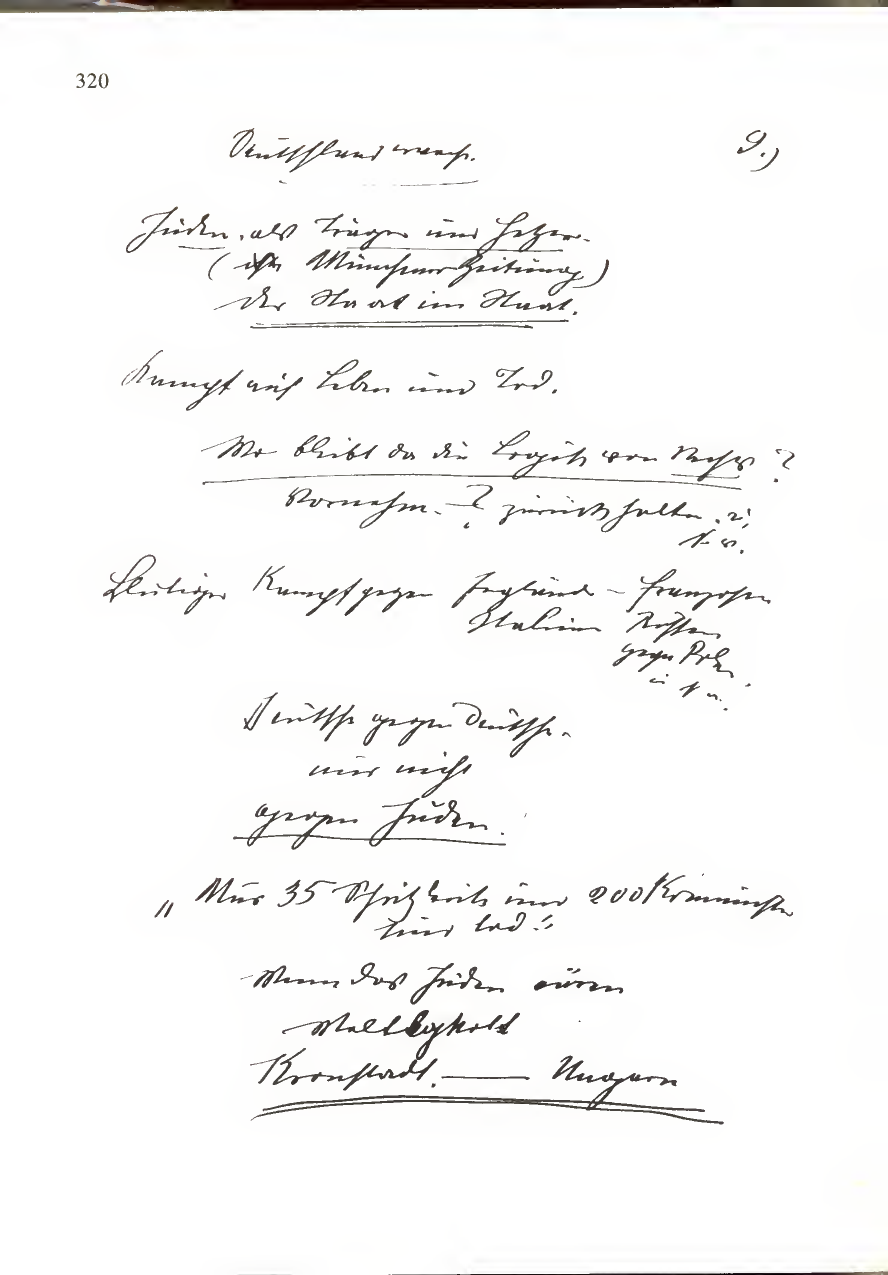 320
Deutschland erwach. 9.)
Juden, als Träger und Hetzer.
( Münchner Zeitung)
der Staat im Staat.
Kampf auf Leben und Tod.
Wo bleibt da die Logik von Rechts?
Vornehm. —? zurückhalten. u.
s. w.
Blutiger Kampf gegen Engländ – Franzosen
Italien Russen
gegen Polen.
u. s. w.
Deutsche gegen Deutsche.
nur nicht
gegen Juden.
„Nur 35 und 200 Kommunisten
sind tod."
Wenn das Juden wären
Kronstadt. — Ungarn